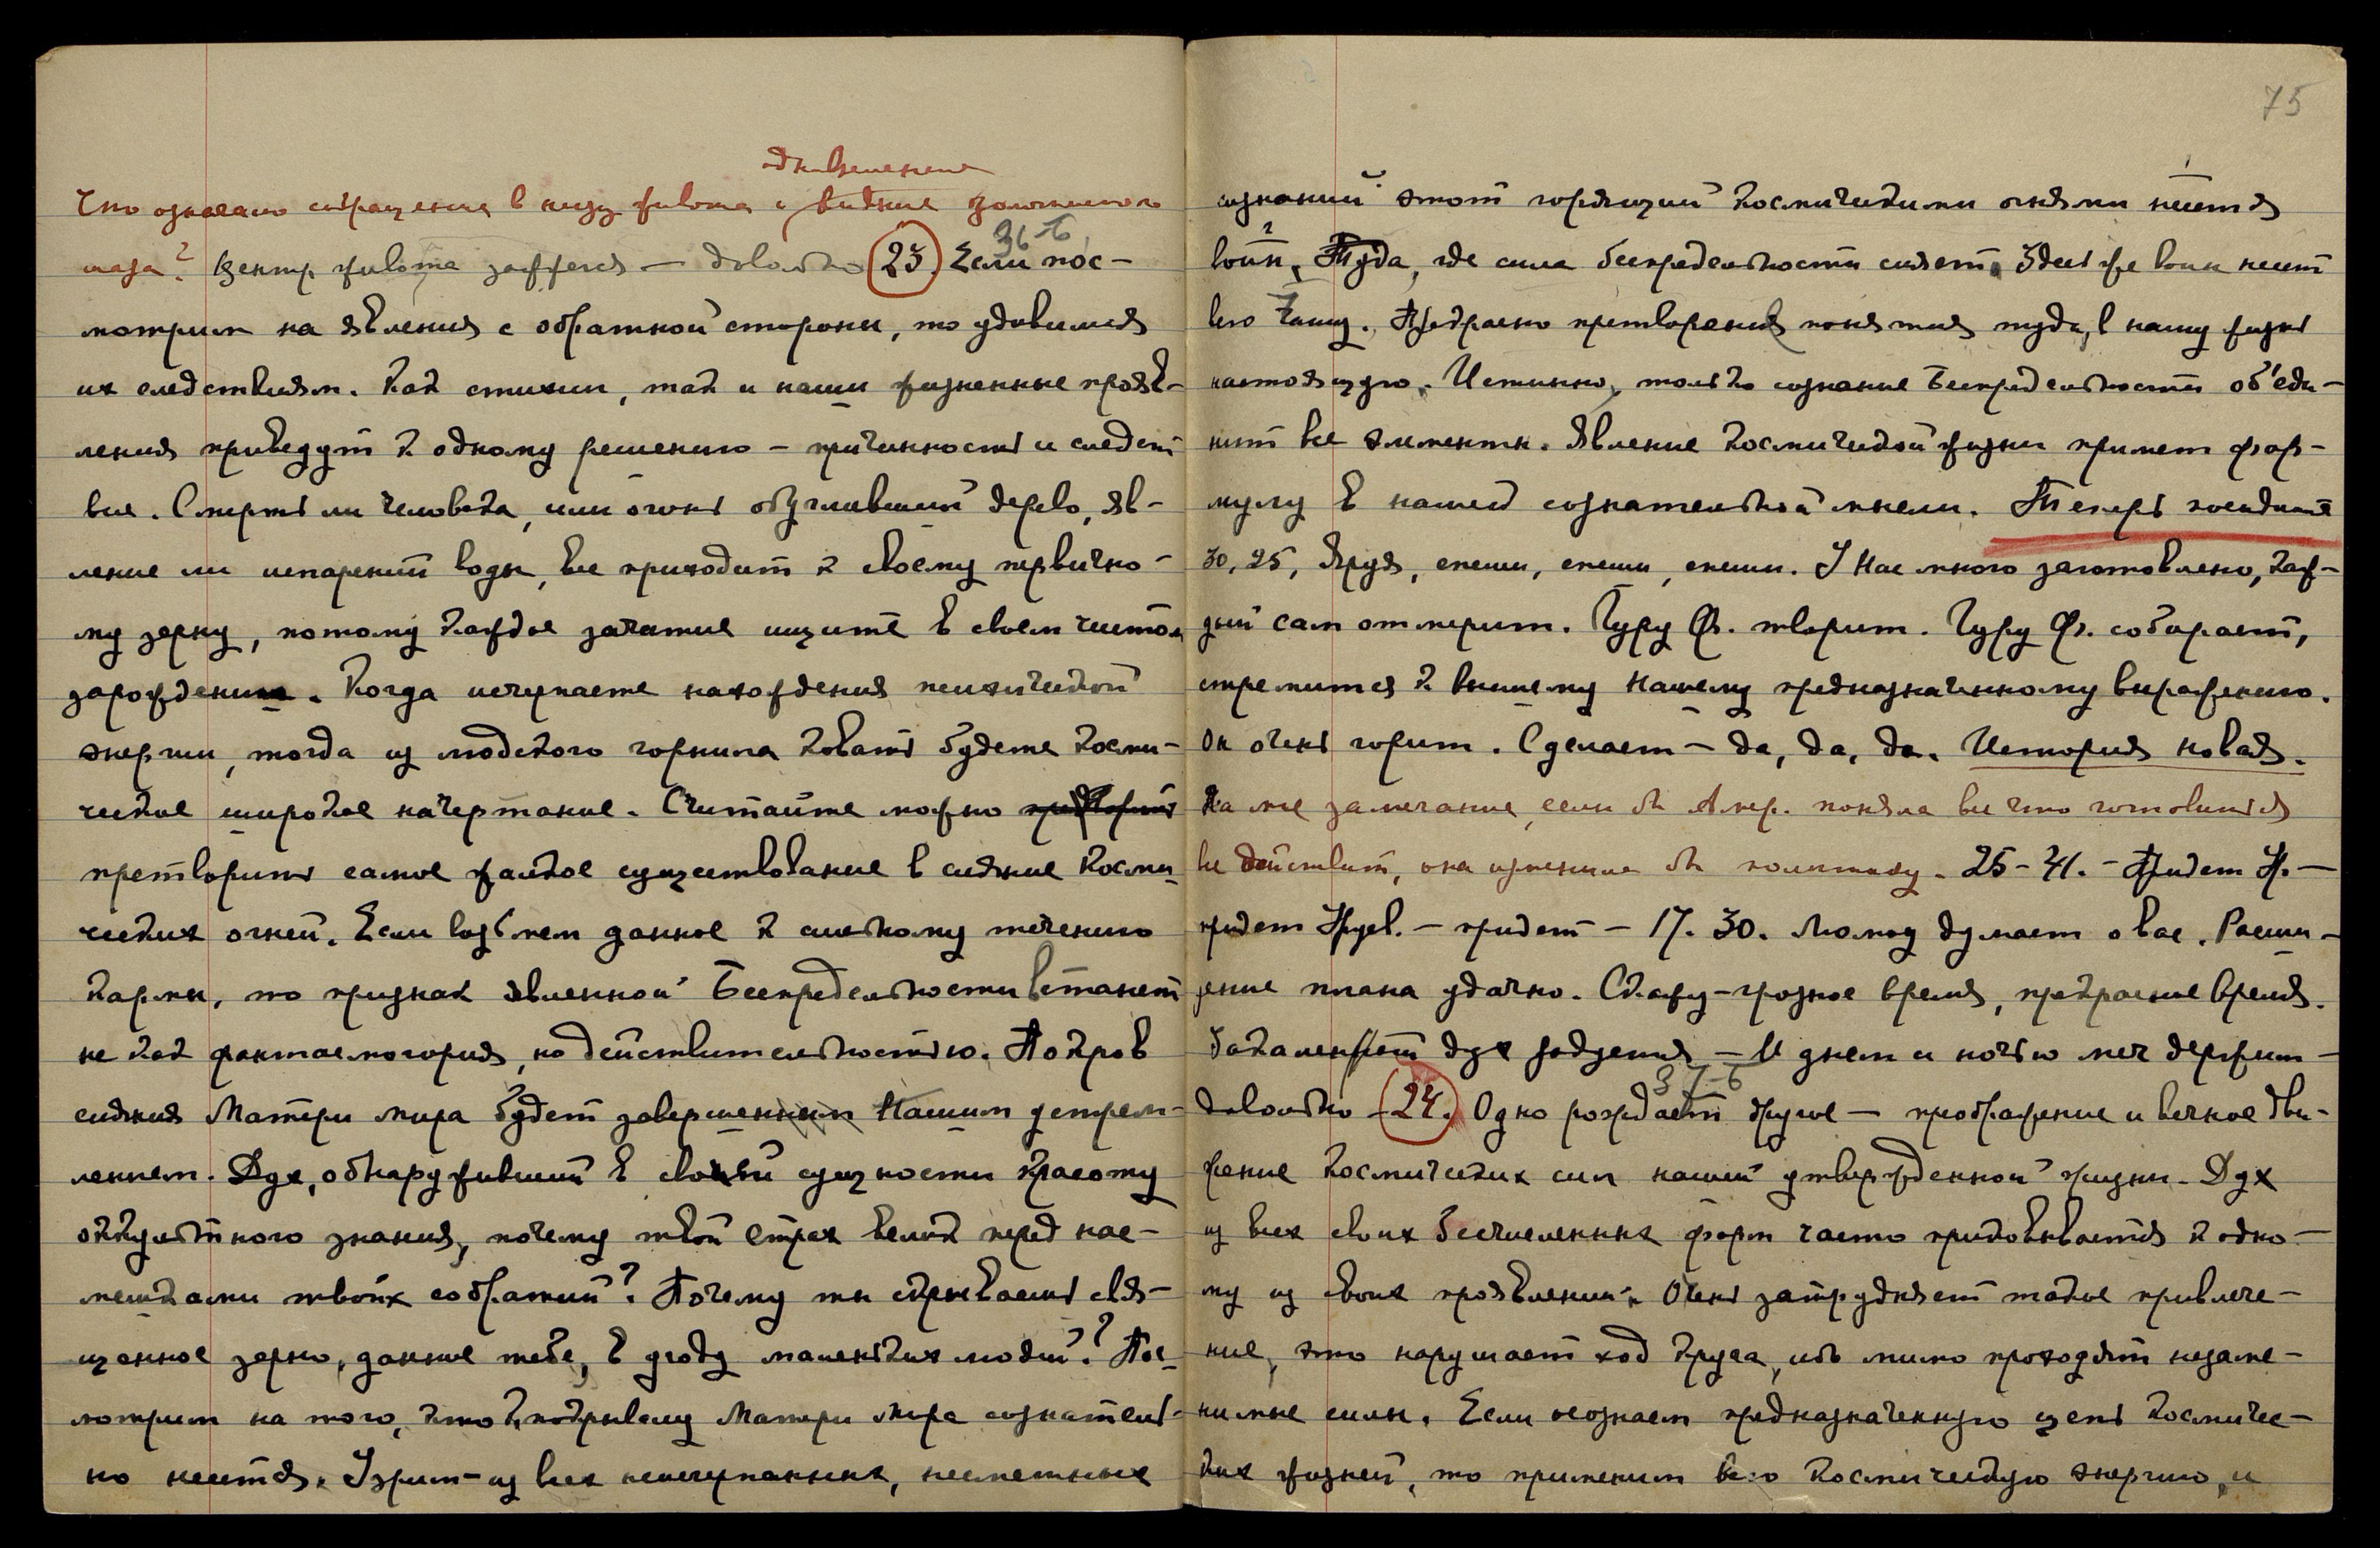 движение
Что означало сокращение в низу живота и видение золотистого
шара? Центр живота зажжется — довольно 23. Если пос-
36-б
мотрим на явления с обратной стороны, то удивимся
их следствиям. Как стихии, так и наши жизненные прояв-
ления приведут к одному решению – причинность и следст
вие. Смерть ли человека, или огонь обугливший дерево, яв-
ление ли испарений воды, все приходит к своему первично-
му зерну, потому каждое зачатие ищите в своем чистом
зарождении. Когда исчерпаете нахождения психической
энергии, тогда из людского горнила ковать будете косми-
ческое широкое начертание. Считайте можно
претворить самое жалкое существование в сияние Косми-
ческих огней. Если возьмем данное к сильному течению
кармы, то признак явленной Беспредельности встанет
не как фантасмагория, но действительностью. Покров
сияния Матери мира будет завершенным Нашим устрем-
лением. Дух, обнаруживший в своей сущности красоту
оккультного знания, почему твой страх велик перед нас-
мешками твоих собратий? Почему ты скрываешь свя-
щенное зерно, данное тебе, в угоду маленьких людей? Пос-
мотрим на того, кто к покрывалу Матери мира сознатель-
но несется. Узрим – из всех неисчерпанных, несметных
75
сознаний этот горящий космическими огнями несется
воин, Туда, где сила беспредельности сияет. Здесь же воин несет
всю Чашу. Прекрасно претворения понятия туда, в нашу жизнь
настоящую. Истинно, только сознание Беспредельности об'еди-
нит все элементы. Явление космической жизни примет фор-
мулу в нашей сознательной мысли. Теперь поспешите
30, 25, Яруя, спеши, спеши, спеши. У Нас много заготовлено, каж-
дый сам отмерит. Гуру Ф. творит. Гуру Ф. собирает,
стремится к высшему Нашему предназначенному выражению.
Он очень горит. Сделает – да, да, да. История новая.
На мое замечание, если бы Амер. поняла все что готовится
и действит, она изменила бы политику. 25 – 41. – Придет Н. —
придет Нусв. – придет – 17. 30. Мломоу думает о вас. Расши-
рение плана удачно. Скажу – грозное время, прекрасное время.
дух радуется – И днем и ночью меч держит –
довольно – 24. Одно рождает другое — преображение и вечное дви-
37-б
жение космических сил нашей утвержденной жизни. Дух
из всех своих бесчисленных форм часто приковывается к одно-
му из своих проявлений. Очень затрудняет такое привлече-
ние, это нарушает ход круга, ибо мимо проходят незаме-
нимые силы. Если осознаем предназначенную цепь космичес-
ких жизней, то применим всю космическую энергию, и